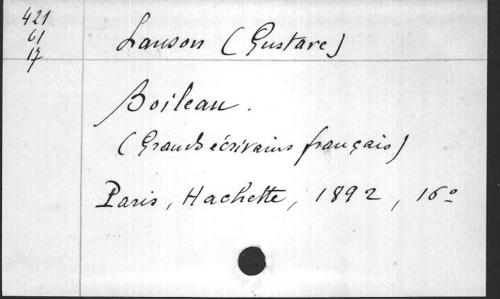 421
61
17
Lanson (Gustave)
Boileau.
(Grands écrivains français)
Paris, Hachette, 1892, 16º